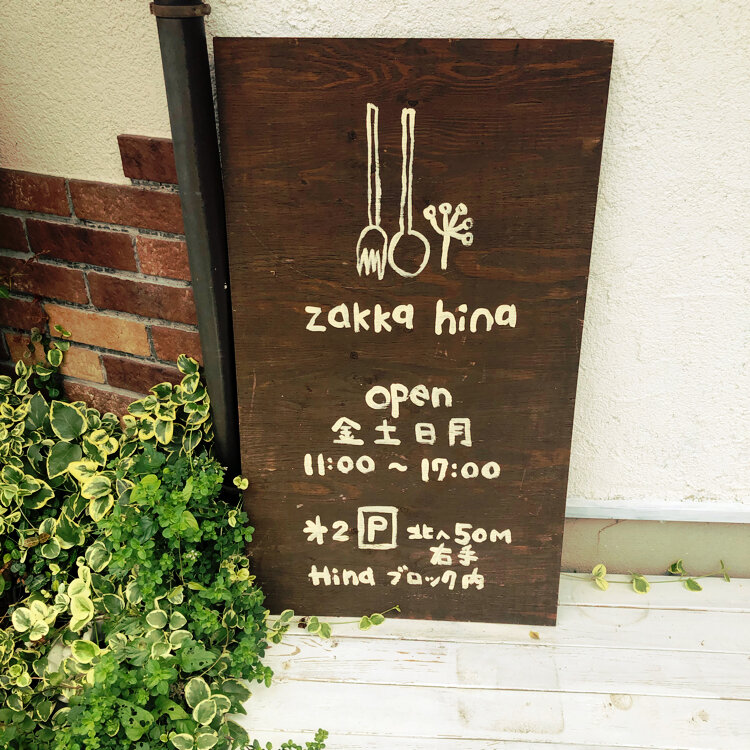 zakka hina
open
金土日月
11:00 ～ 17:00
*2 P 北へ50M
右手
Hina ブロック内